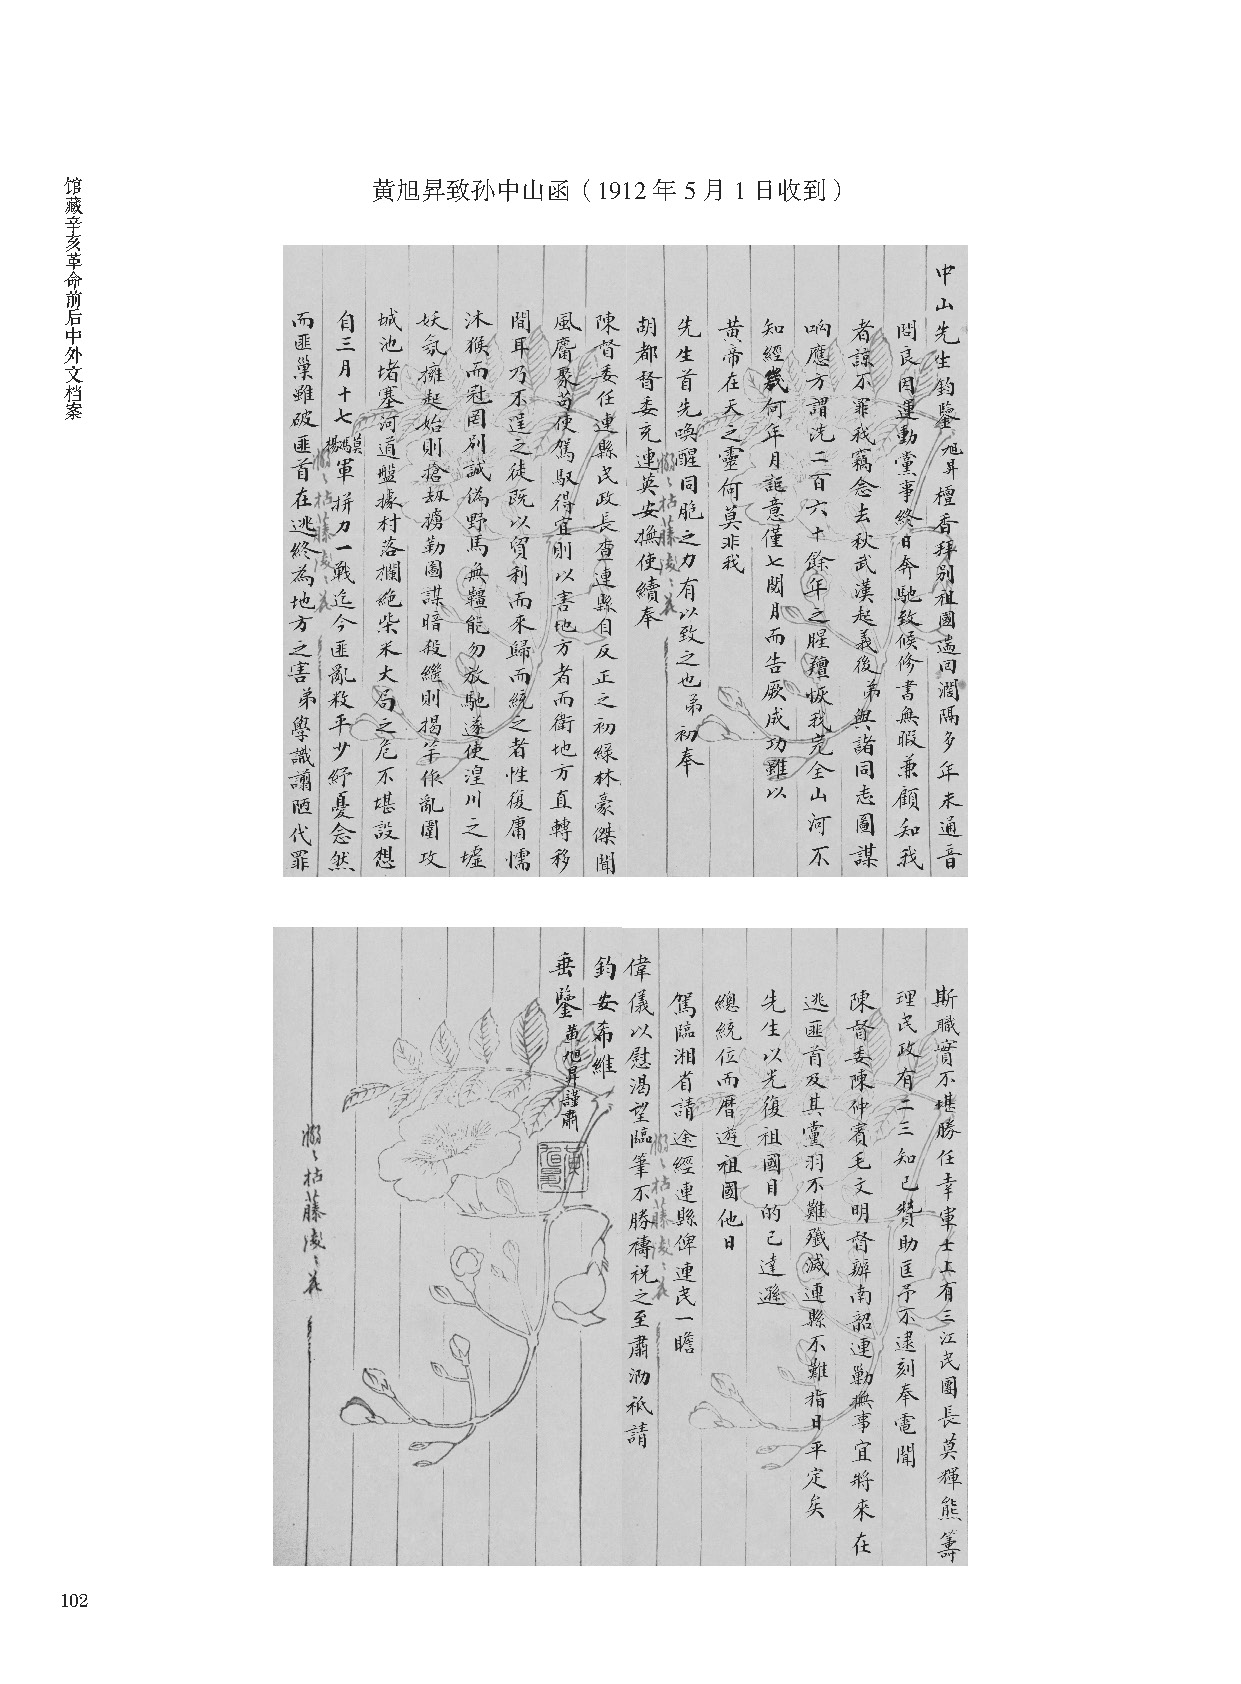 馆藏辛亥革命前后中外文档案
黄旭昇致孙中山函（1912 年 5 月 1 日收到）
中山先生鈞鑒旭昇檀香拜别祖國遄回濶隔多年未通音
問良因運動黨事終日奔馳致候修書無暇兼顧知我
者諒不罪我竊念去秋武漢起義後弟與諸同志圖謀
响應方謂洗二百六十餘年之腥羶恢我完全山河不
知經幾何年月詎意僅七閲月而告厥成功雖以
黃帝在天之靈何莫非我
先生首先喚醒同胞之力有以致之也弟初奉
胡都督委充連英安撫使續奉
陳督委任連縣民政長查連縣自反正之初綠林豪傑聞
風麕聚苟使駕馭得宜則以害地方者而衛地方直轉移
間耳乃不逞之徒既以貿利而來歸而統之者性復庸懦
沐猴而冠罔别誠偽野馬無韁能勿放馳遂使湟川之墟
妖氛擁起始則搶刼擄勒圖謀暗殺繼則揭竿作亂圍攻
城池堵塞河道盤據村落攔絶柴米大局之危不堪設想
自三月十七楊馮莫軍拼力一戰迄今匪亂敉平少紓憂念然
而匪巢雖破匪首在逃終為地方之害弟學識譾陋代罪
斯職實不堪勝任幸軍士上有三江民團長莫輝熊籌
理民政有二三知己贊助匡予不逮刻奉電聞
陳督委陳仲賓毛文明督辦南韶連勦撫事宜將來在
逃匪首及其黨羽不難殲滅連縣不難指日平定矣
先生以光復祖國目的已達遜
總統位而暦遊祖國他日
駕臨湘省請途經連縣俾連民一瞻
偉儀以慰渴望臨筆不勝禱祝之至肅泐祇請
鈞安希維
垂鑒 黄旭昇謹肅
枯藤
102